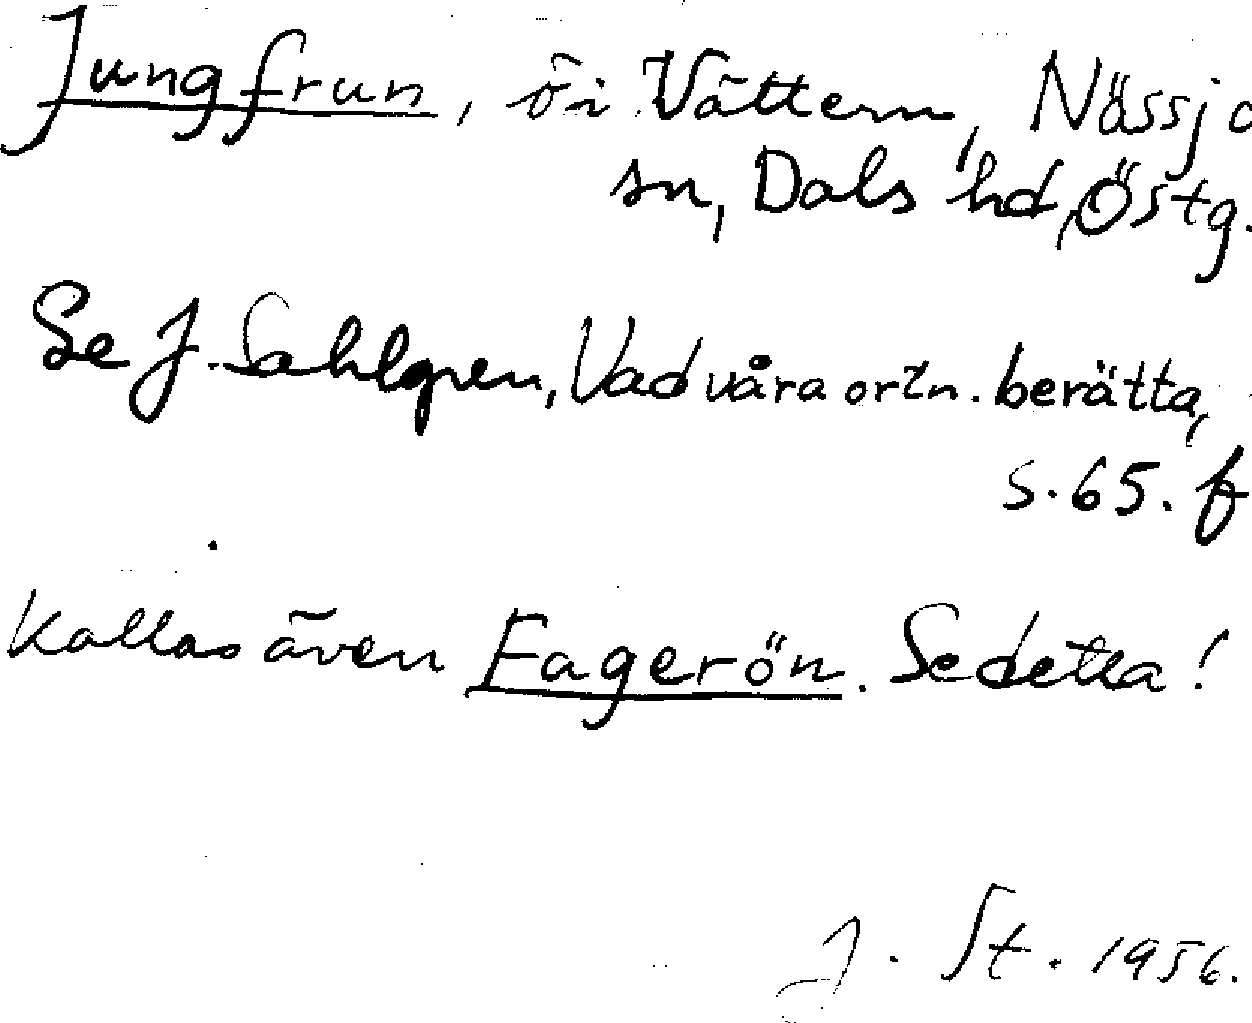 Jungfrun, ö i Vättern, Nässjö
sn, Dals hd, Östg.
Se J. Sahlgren, Vad våra ortn. berätta,
s. 65. f
Kallas även Fagerön. Se detta!
J. St. 1956.